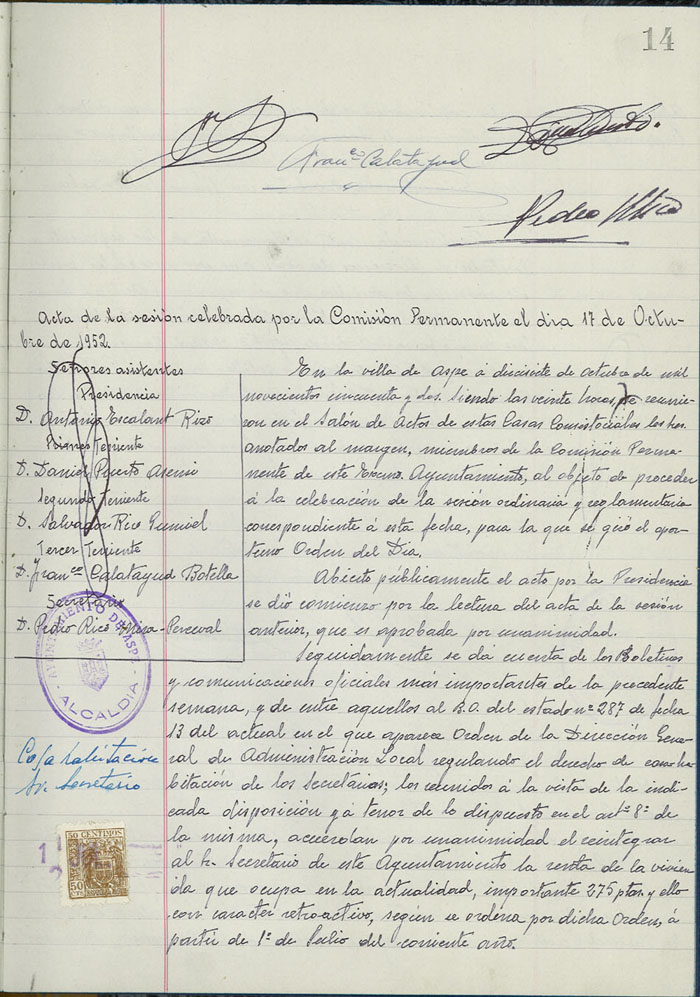 14
Fran^co Calatayud
Pedro
Acta de la sesión celebrada por la Comisión Permanente el dia 17 de Octu-
bre de 1952.
Señores asistentes
Presidencia
D. Antonio Escalant Rizo
Primer Teniente
D. Daniel Puerto Asensi
Segundo Teniente
D. Salvador Rico Gumiel
Tercer Teniente
D. Fran^co Calatayud Botella
Secretario
D. Pedro Rico Mira-Perceval
AYUNTAMIENTO DE ASPE
- ALCALDIA -
Casa habitación
Sr. Secretario
50 CENTIMOS
50 CTS
En la villa de Aspe á diecisiete de octubre de mil
novecientos cincuenta y dos. Siendo las veinte horas, se reunie-
ron en el Salón de Actos de estas Casas Consistoriales los Sres.
anotados al margen, miembros de la Comisión Perma-
nente de este Excmo. Ayuntamiento, al objeto de proceder
á la celebración de la sesión ordinaria y reglamentaria
correspondiente á esta fecha, para la que se giró el opor-
tuno Orden del Dia.
Abierto públicamente el acto por la Presidencia
se dió comienzo por la lectura del acta de la sesión
anterior, que es aprobada por unanimidad.
Seguidamente se dá cuenta de los Boletines
y comunicaciones oficiales más importantes de la precedente
semana, y de entre aquellos al B.O. del estado nº 287 de fecha
13 del actual en el que aparece Orden de la Dirección Gene-
ral de Administración Local regulando el derecho de casa ha-
bitación de los Secretarios; los reunidos á la vista de la indi-
cada disposición y á tenor de lo dispuesto en el artº 8º de
la misma, acuerdan por unanimidad el reintegrar
al Sr. Secretario de este Ayuntamiento la renta de la vivien
da que ocupa en la actualidad, importante 275 ptas. y ello
con caracter retroactivo, según se ordena por dicha Orden, á
partir de 1º de Julio del corriente año.